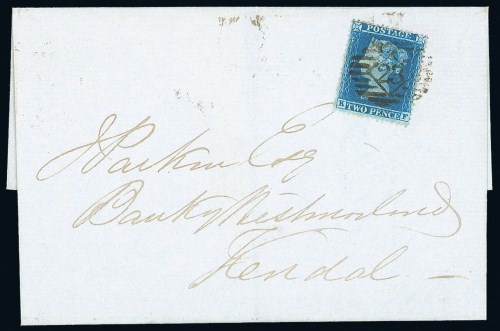 POSTAGE
TWO PENCE
J Parkin Esq
Bank of Westmorland
Kendal